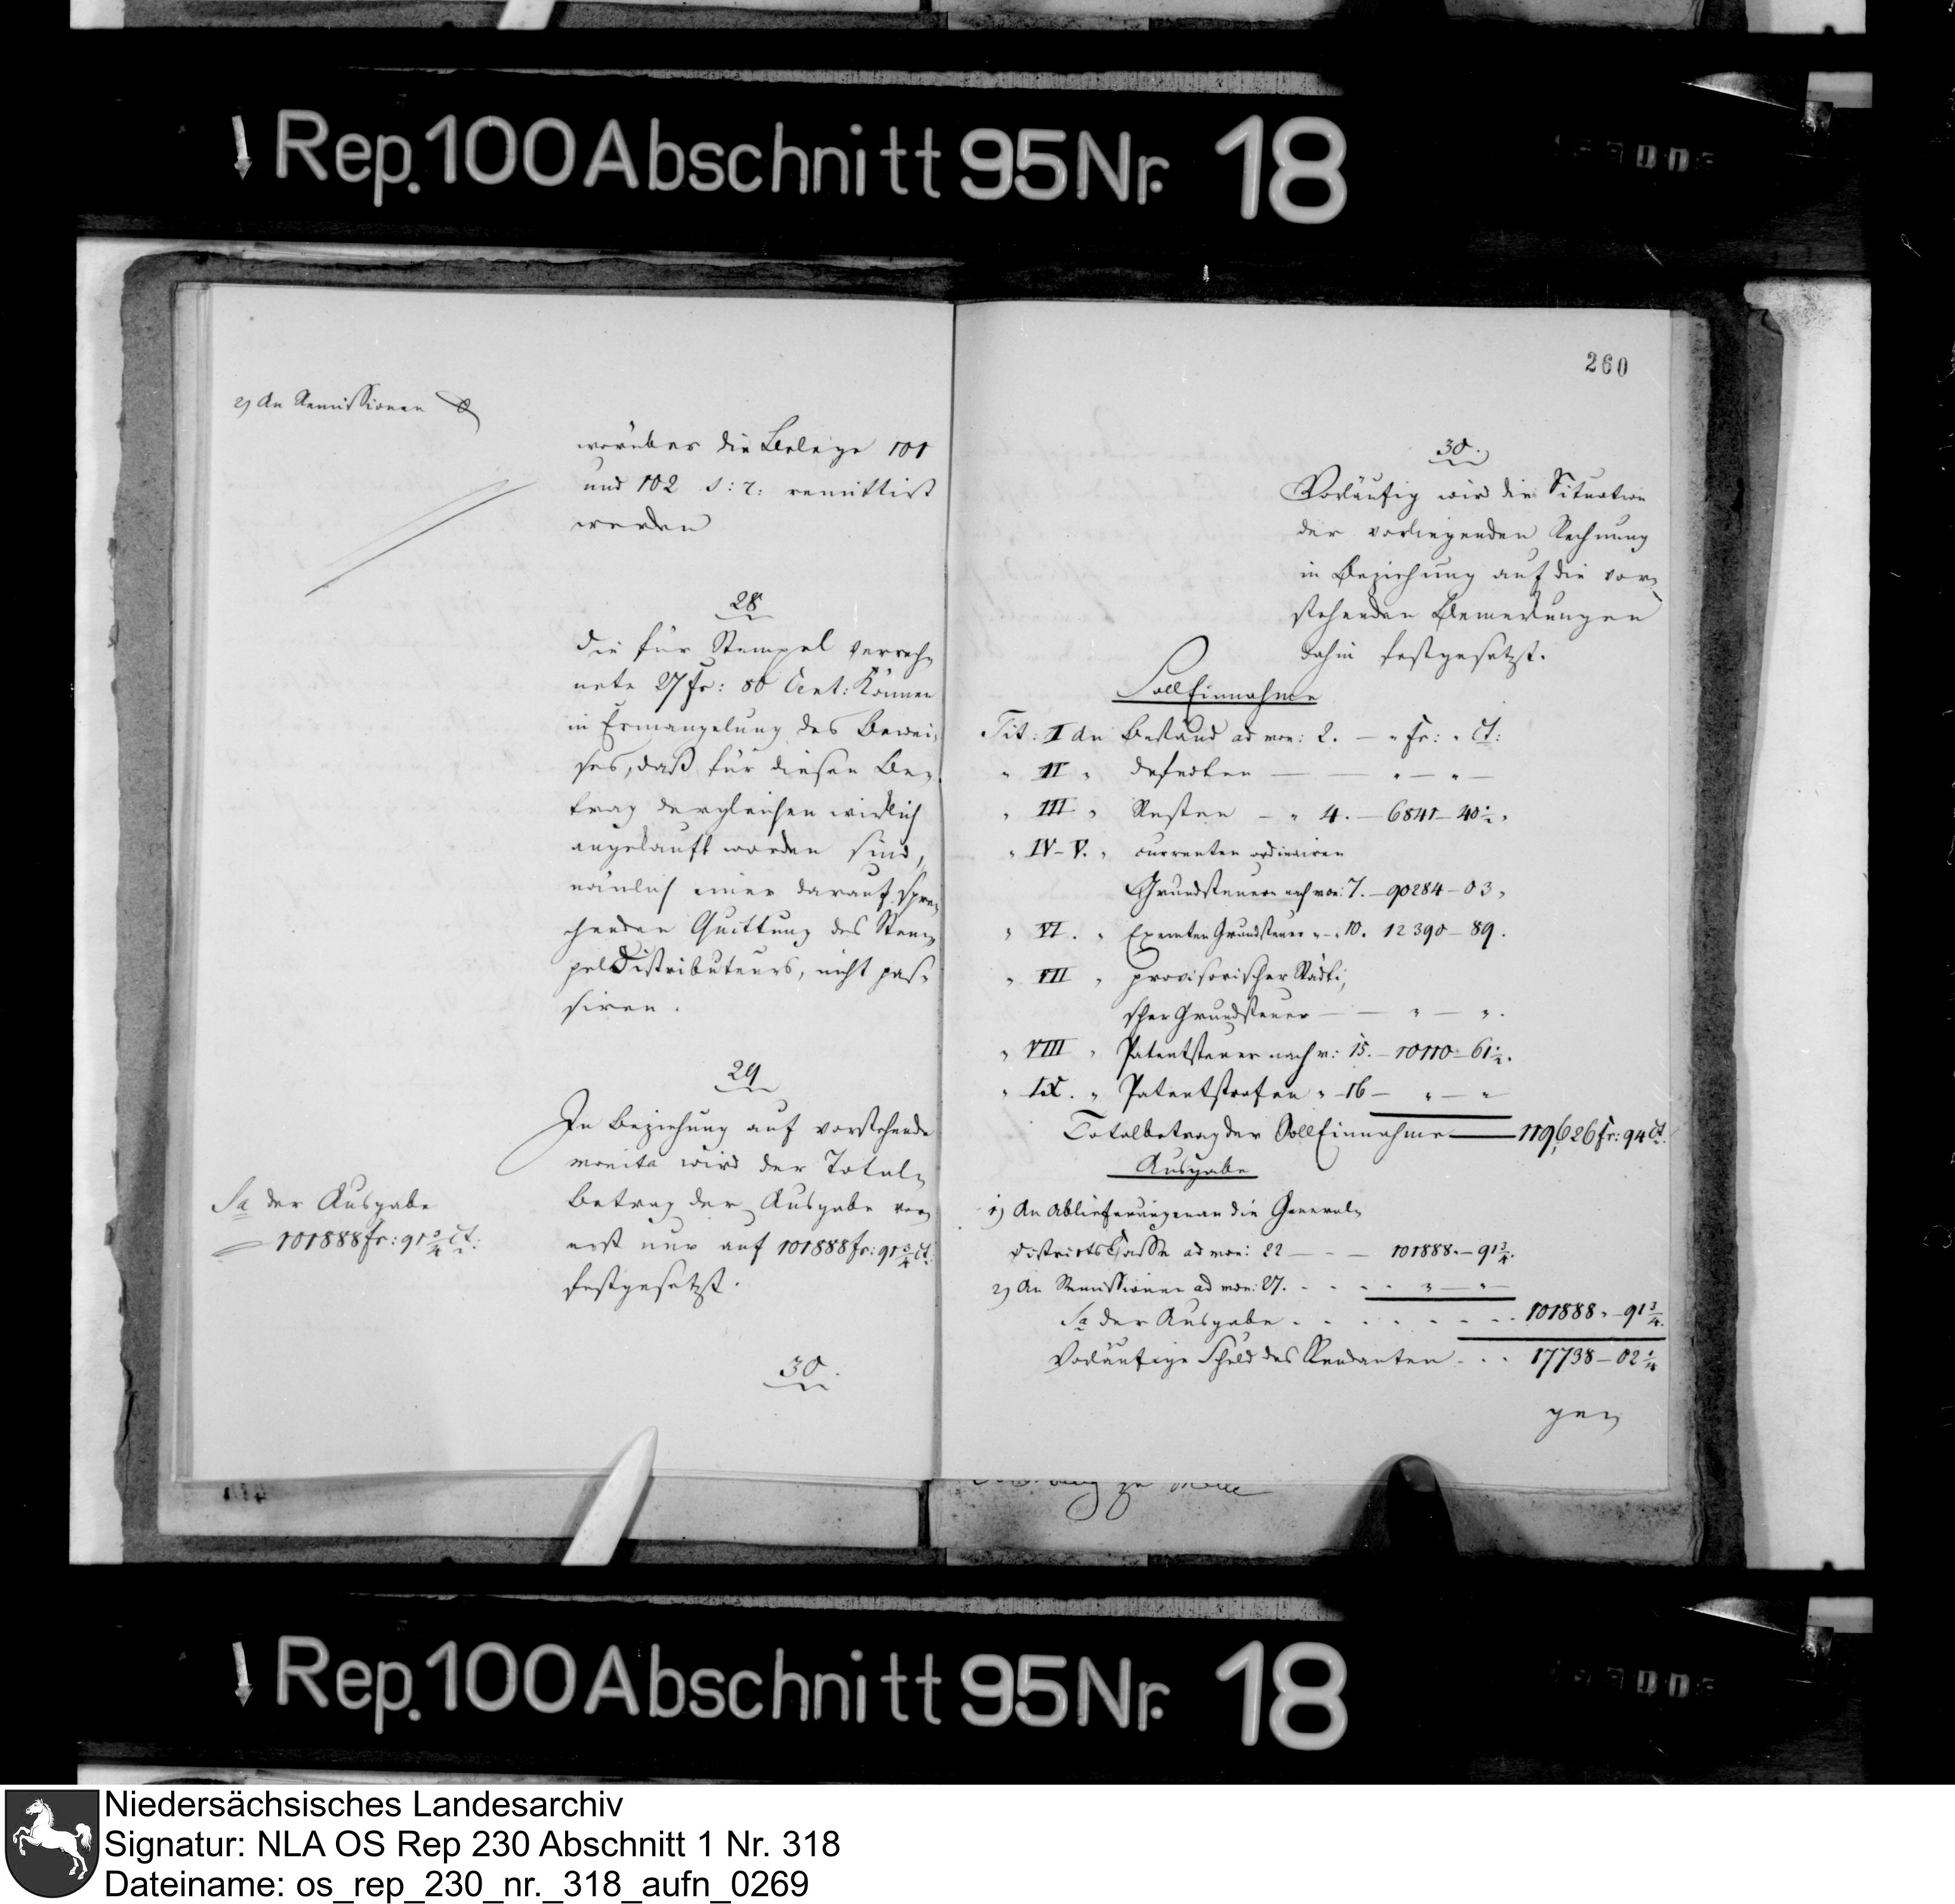 Rep. 100 Abschnitt 95 Nr. 18
2) An Remissionen
worüber die Belege 101
und 102 s: r: remittirt
werden
28
die für Stempel verrech-
nete 27 fr: 80 Cent: können
in Ermangelung des Bewei-
ses, daß für diesen Be-
trag dergleichen wirklich
angekauft worden sind,
nämlich einer darauf spre-
chenden Quittung des Stem-
pel Distributeurs, nicht pas-
siren.
29
In Beziehung auf vorstehende
monita wird der Total-
Betrag der Ausgabe vor-
erst nur auf 101888 fr: 91 3/4 Ct:
festgesetzt.
Sa der Ausgabe
101888 fr: 91 3/4 Ct:
30.
260
30.
Vorläufig wird die Situation
der vorliegenden Rechnung
in Beziehung auf die vor-
stehenden Bemerkungen
dahin festgesetzt.
Soll Einnahme
Tit: I An Bestand ad mon: 2. — " fr: " Ct:
" II " Defecten — — " — " —
" III " Resten — " 4. — 6841 — 40 1/2 "
" IV-V. " currenten ordinairen
Grundsteuer nach mon: 7. — 90284 — 03 "
" VI. " Exemten Grundsteuer " — " 10. 12390 — 89.
" VII " provisorischer Städti-
scher Grundsteuer — — " — ".
" VIII " Patentsteuer nach m: 15. — 10110 — 61 1/2.
" IX. " Patentstrafen " — 16 — " — "
Totalbetrag der Soll Einnahme — 119,626 fr: 94 Ct.
Ausgabe
1) An Ablieferungen an die General-
Districts Casse ad mon: 22 — — — 101888. — 91 3/4.
2) An Remissionen ad mon: 27. - - - " — "
Sa der Ausgabe . . . . . . . 101888. — 91 3/4.
Vorläufige Schuld des Rendanten . . . 17738 — 02 1/4
gez
Rep. 100 Abschnitt 95 Nr. 18
Niedersächsisches Landesarchiv
Signatur: NLA OS Rep 230 Abschnitt 1 Nr. 318
Dateiname: os_rep_230_nr._318_aufn_0269